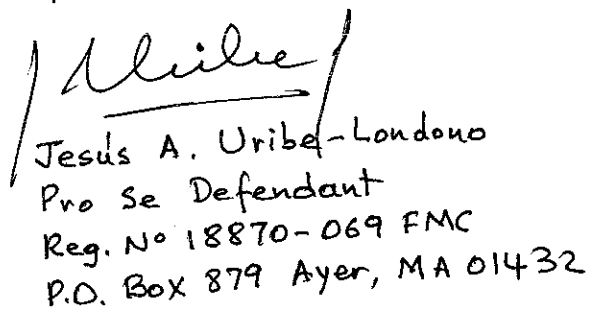 Uribe
Jesús A. Uribe-Londono
Pro Se Defendant
Reg. Nº 18870-069 FMC
P.O. Box 879 Ayer, MA 01432